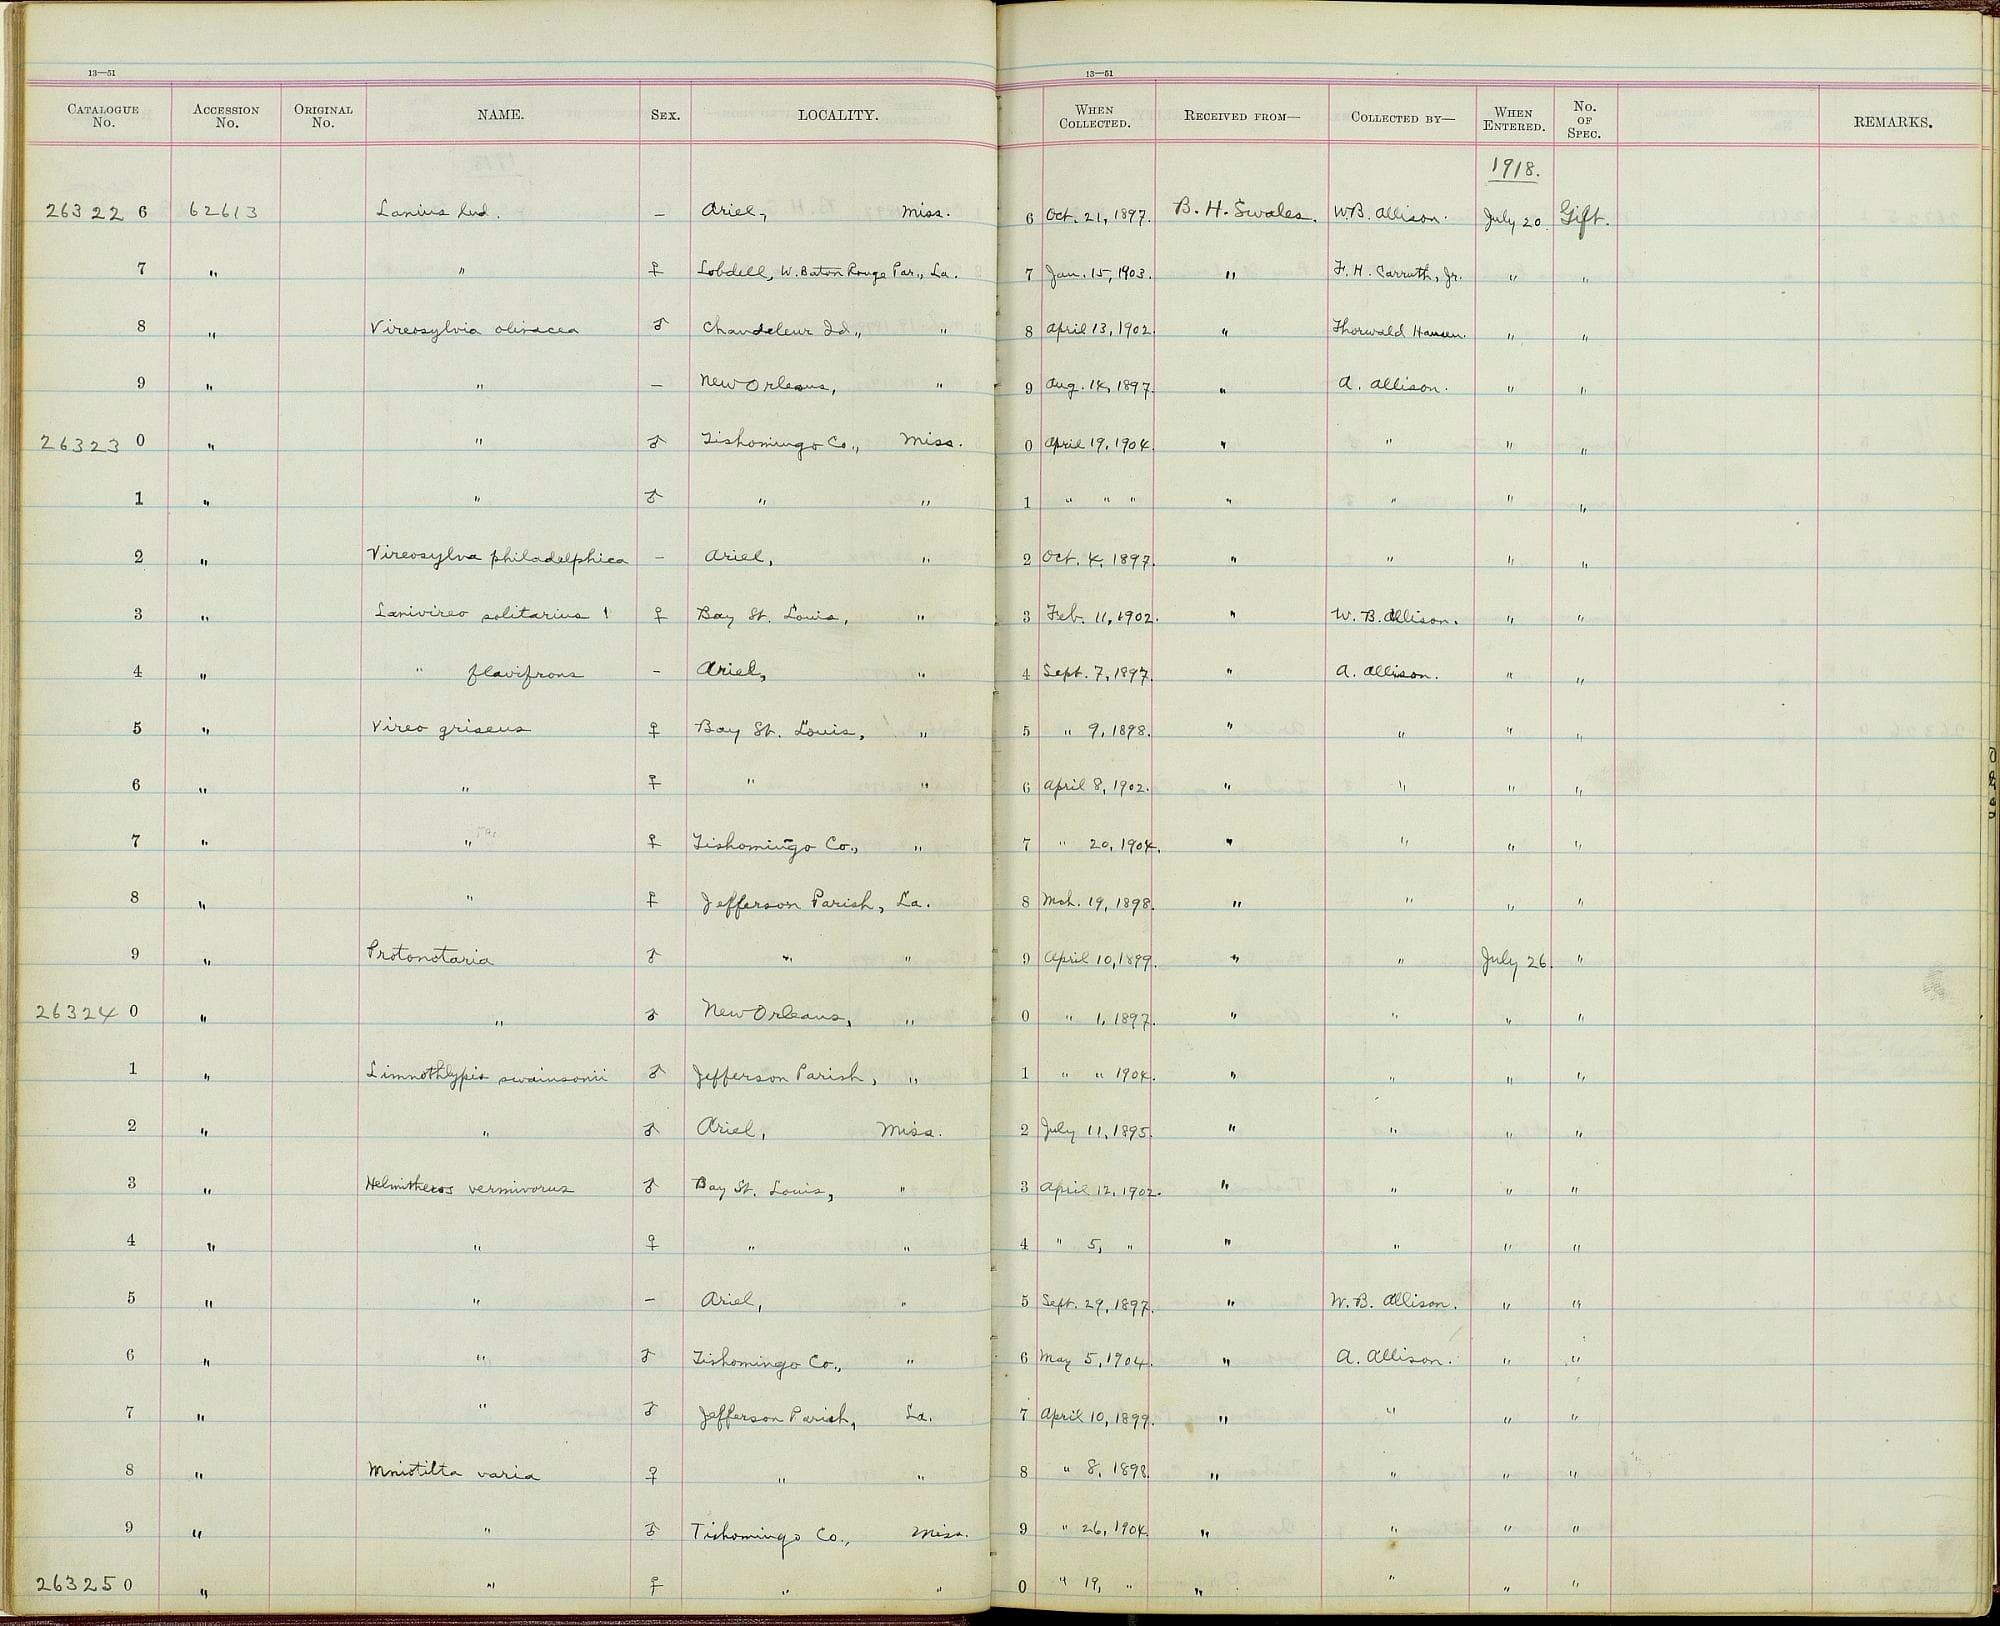 13—51
13—51
CATALOGUE No. ACCESSION No. ORIGINAL No. NAME. SEX. LOCALITY. WHEN COLLECTED. RECEIVED FROM— COLLECTED BY— WHEN ENTERED. No. OF SPEC. REMARKS.
1918.
26322 6 62613 Lanius lud. – Ariel, Miss. 6 Oct. 21, 1897. B. H. Swales. W.B. Allison. July 20. Gift.
7 " " ♀ Lobdell, W. Baton Rouge Par., La. 7 Jan. 15, 1903. " F. H. Carruth, Jr. " "
8 " Vireosylvia olivacea ♂ Chandeleur Id., " 8 April 13, 1902. " Thorwald Hansen. " "
9 " " – New Orleans, " 9 Aug. 14, 1897. " A. Allison. " "
26323 0 " " ♂ Tishomingo Co., Miss. 0 April 19, 1904. " " " "
1 " " ♂ " " 1 " " " " " " "
2 " Vireosylva philadelphica – Ariel, " 2 Oct. 4, 1897. " " " "
3 " Lanivireo solitarius ♀ Bay St. Louis, " 3 Feb. 11, 1902. " W. B. Allison. " "
4 " " flavifrons – Ariel, " 4 Sept. 7, 1897. " A. Allison. " "
5 " Vireo griseus ♀ Bay St. Louis, " 5 " 9, 1898. " " " "
6 " " ♀ " " 6 April 8, 1902. " " " "
7 " " ♀ Tishomingo Co., " 7 " 20, 1904. " " " "
8 " " ♀ Jefferson Parish, La. 8 Mch. 19, 1898. " " " "
9 " Protonotaria ♂ " " 9 April 10, 1899. " " July 26. "
26324 0 " " ♂ New Orleans, " 0 " 1, 1897. " " " "
1 " Limnothlypis swainsonii ♂ Jefferson Parish, " 1 " " 1904. " " " "
2 " " ♂ Ariel, Miss. 2 July 11, 1895. " " " "
3 " Helmitheros vermivorus ♂ Bay St. Louis, " 3 April 12, 1902. " " " "
4 " " ♀ " " 4 " 5, " " " " "
5 " " – Ariel, " 5 Sept. 29, 1897. " W. B. Allison. " "
6 " " ♂ Tishomingo Co., " 6 May 5, 1904. " A. Allison. " "
7 " " ♂ Jefferson Parish, La. 7 April 10, 1899. " " " "
8 " Mniotilta varia ♀ " " 8 " 8, 1898. " " " "
9 " " ♂ Tishomingo Co., Miss. 9 " 26, 1904. " " " "
26325 0 " " ♀ " " 0 " 19, " " " " "